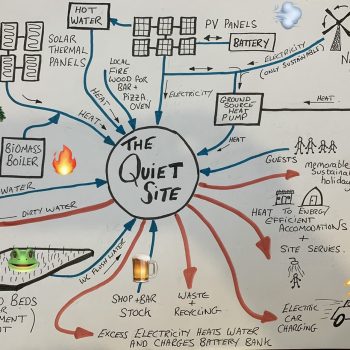 HOT
WATER
PV PANELS
BATTERY
SOLAR
THERMAL
PANELS
LOCAL
FIRE
WOOD FOR
BAR +
PIZZA
OVEN
ELECTRICITY
(ONLY SUSTAINABLE)
HEAT
HEAT
ELECTRICITY
GROUND
SOURCE
HEAT
PUMP
HEAT
HEAT
BIOMASS
BOILER
THE
QUIET
SITE
GUESTS
memorable
Sustaina
holiday
WATER
DIRTY WATER
HEAT TO ENERGY
EFFICIENT
ACCOMODATIONS
+
SITE SERVIES.
WC FLUSH WATER
D BEDS
SHOP + BAR
STOCK
WASTE
+
RECYCLING
ELECTRIC
CAR
CHARGING
EXCESS ELECTRICITY HEATS WATER
AND CHARGES BATTERY BANK